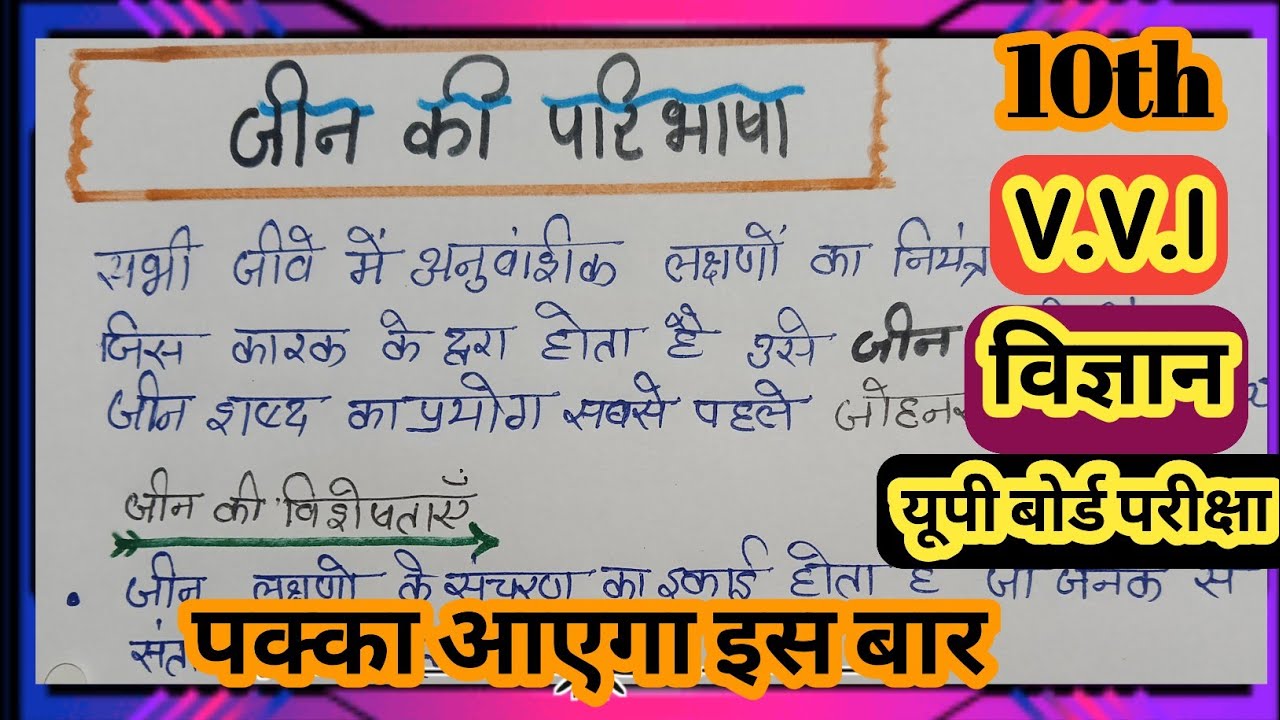 जीन की परिभाषा
10th
V.V.I
विज्ञान
यूपी बोर्ड परीक्षा
सभी जीवे में अनुवांशीक लक्षणों का नियंत्र
जिस कारक के द्वरा होता है उसे जीन
जीन शब्द का प्रयोग सबसे पहले जोहन
जीन की विशेषताएँ
• जीन लक्षणो के संचरण का इकाई होता है जो जनक से
पक्का आएगा इस बार